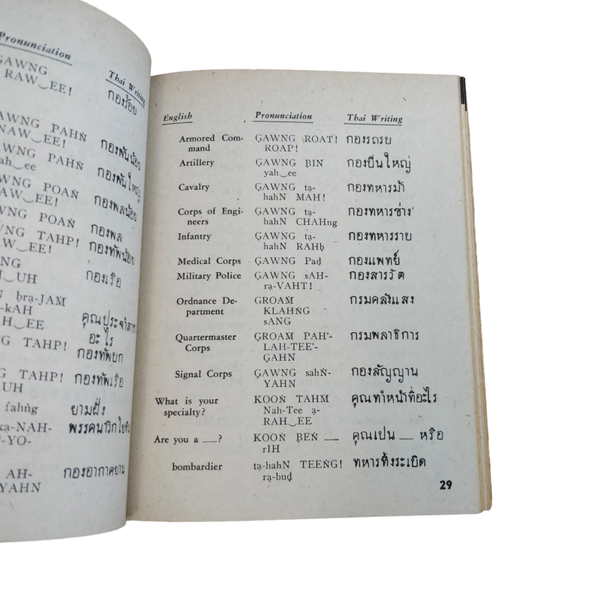 Pronunciation
Thai Writing
GAWNG
RAW‿EE!
กองร้อย
GAWNG PAHṄ
NAW‿EE!
กองพันน้อย
GAWNG PAHṄ
yah‿ee
กองพันใหญ่
POAṄ
กองพลน้อย
POAṄ
กองพล
TAHP!
กองทัพน้อย
UH
กองเรือ
ḅrạ-JAM
-kAH
AH‿EE
คุณประจำ
อะไร
TAHP!
กองทัพบก
TAHP!
กองทัพเรือ
fahṅg
ยามฝั่ง
kạ-NAH-
-YO-
AH-
YAHN
กองอากาศยาน
English Pronunciation Thai Writing
Armored Com- GAWNG ROAT! กองรถรบ
mand ROAP!
Artillery GAWNG ḄIN กองปืนใหญ่
yah‿ee
Cavalry GAWNG tạ- กองทหารม้า
hahN MAH!
Corps of Engi- GAWNG tạ- กองทหารช่าง
neers hahN CHAHng
Infantry GAWNG tạ- กองทหารราบ
hahN RAHḅ
Medical Corps GAWNG Paḍ กองแพทย์
Military Police GAWNG sAH- กองสารวัต
rạ-VAHT!
Ordnance De- GROAM กรมคลังแสง
partment KLAHṄG
sANG
Quartermaster GROAM PAH'- กรมพลาธิการ
Corps LAH-TEE'-
GAHN
Signal Corps GAWNG sahṄ- กองสัญญาน
YAHN
What is your KOOṄ TAHM คุณทำหน้าที่อะไร
specialty? Nah-Tee ạ-
RAH‿EE
Are you a __? KOOṄ ḄEṄ __ คุณเปน __ หรือ
rIH
bombardier tạ-hahN TEENG! ทหารทิ้งระเบิด
rạ-buḍ
29